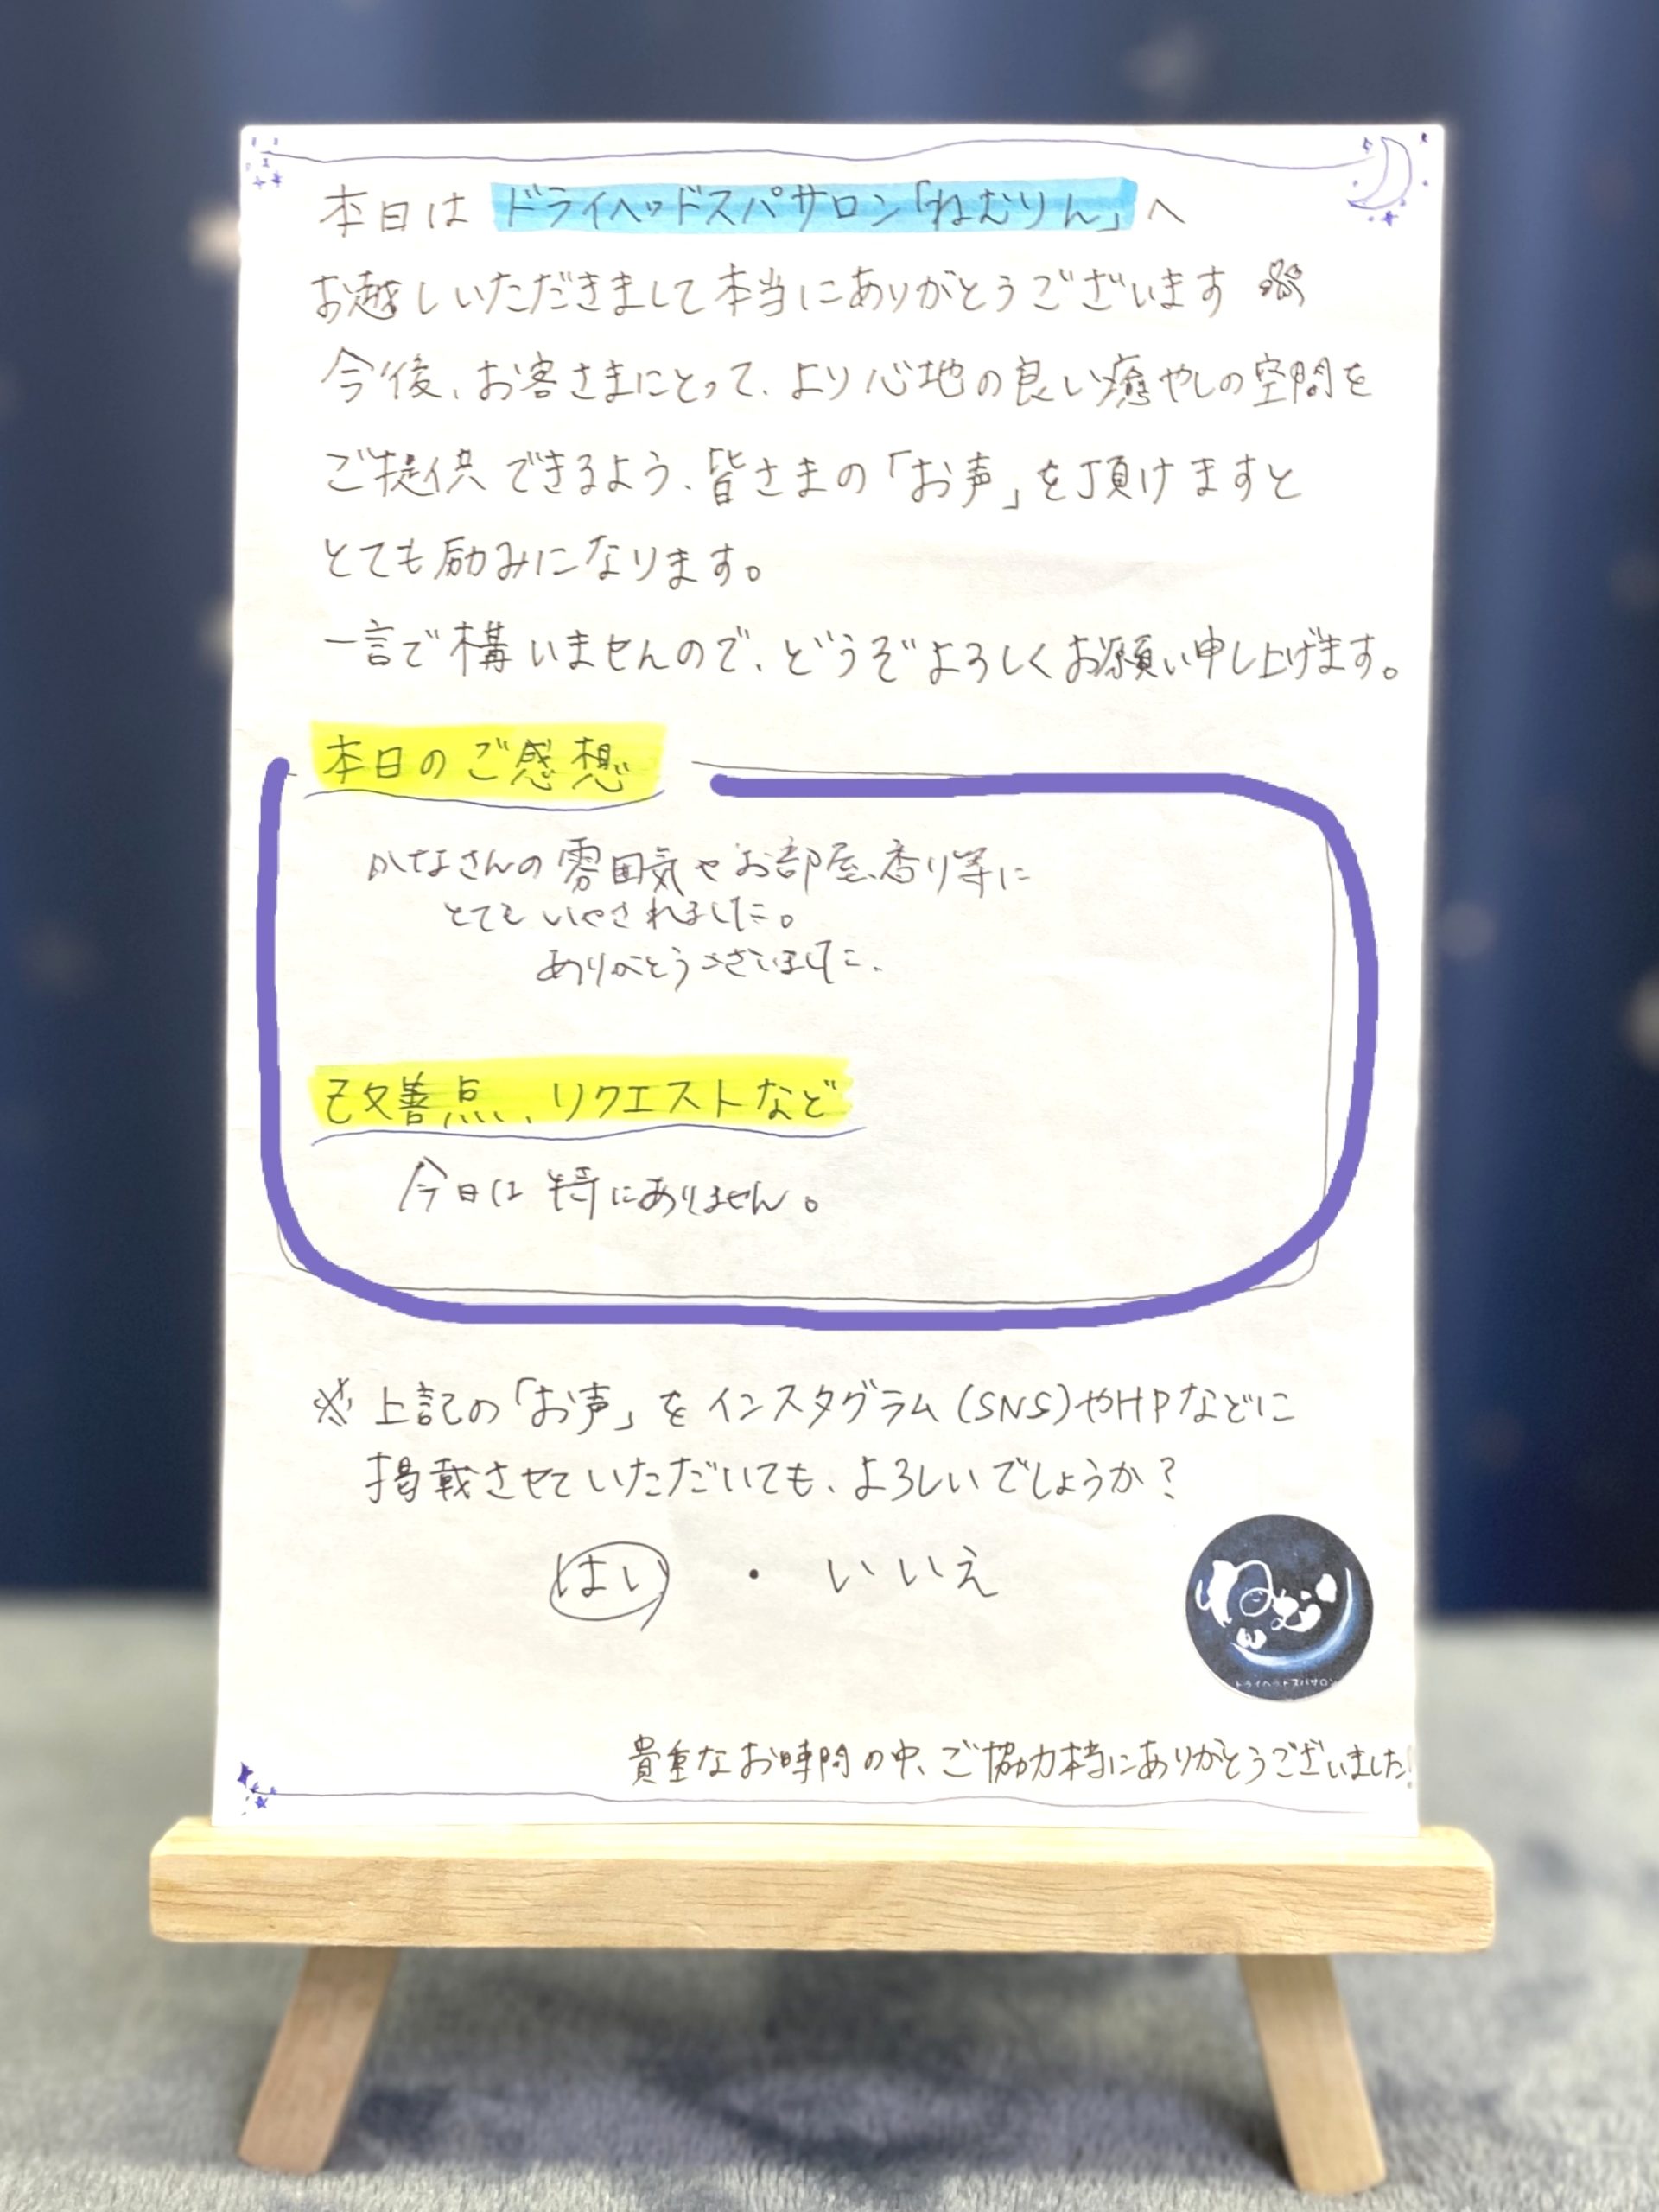 本日は ドライヘッドスパサロン「ねむりん」へ
お越しいただきまして本当にありがとうございます
今後、お客さまにとって、より心地の良い癒やしの空間を
ご提供できるよう、皆さまの「お声」を頂けますと
とても励みになります。
一言で構いませんので、どうぞよろしくお願い申し上げます。
本日のご感想
かなさんの雰囲気やお部屋、香り等に
とてもいやされました。
ありがとうございました.
改善点、リクエストなど
今日は特にありません。
※上記の「お声」をインスタグラム(SNS)やHPなどに
掲載させていただいても、よろしいでしょうか?
はい ・ いいえ
ドライヘッドスパサロン
貴重なお時間の中、ご協力本当にありがとうございました!